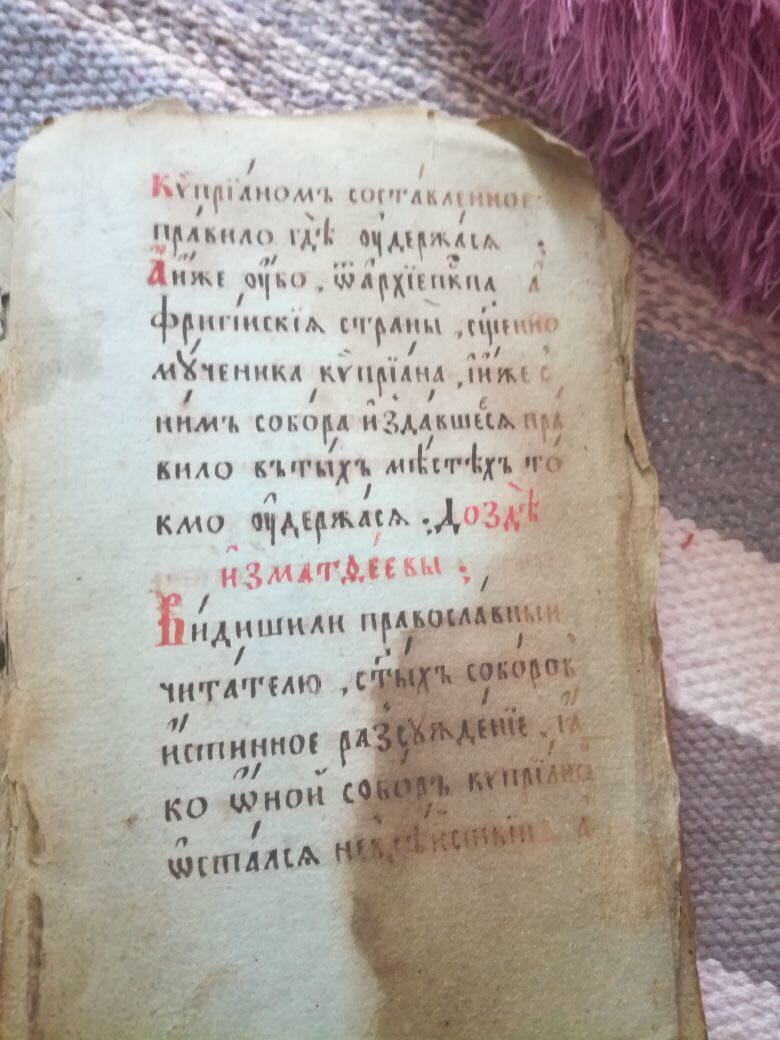 Кѷпрїа́номъ соста́вленное
пра́вило гдѣ̀ ᲂу҆держа́сѧ ;
А҆́иже ᲂу҆́бо , ѿа҆рхїепⷭ҇кпа а҆
фриги́искїѧ страны̀ , сщ҃енно
мꙋ́ченика кѷпрїа́на , и҆́иже с
ни́мъ собо́ра и҆зда́вшеесѧ пра́
вило въты́хъ мѣ́стѣхъ то́
кмо ᲂу҆держа́сѧ : Доздѣ̀
и҆зматѳе́евы ;
Ви́дишили правосла́вныи
чита́телю , ст҃ы́хъ собо́ровъ
и҆́стинное разсꙋжде́нїе , ꙗ҆́
ко ѻ҆́ной собо́ръ кѷпрїа́но
ѡ҆ста́лсѧ а҆